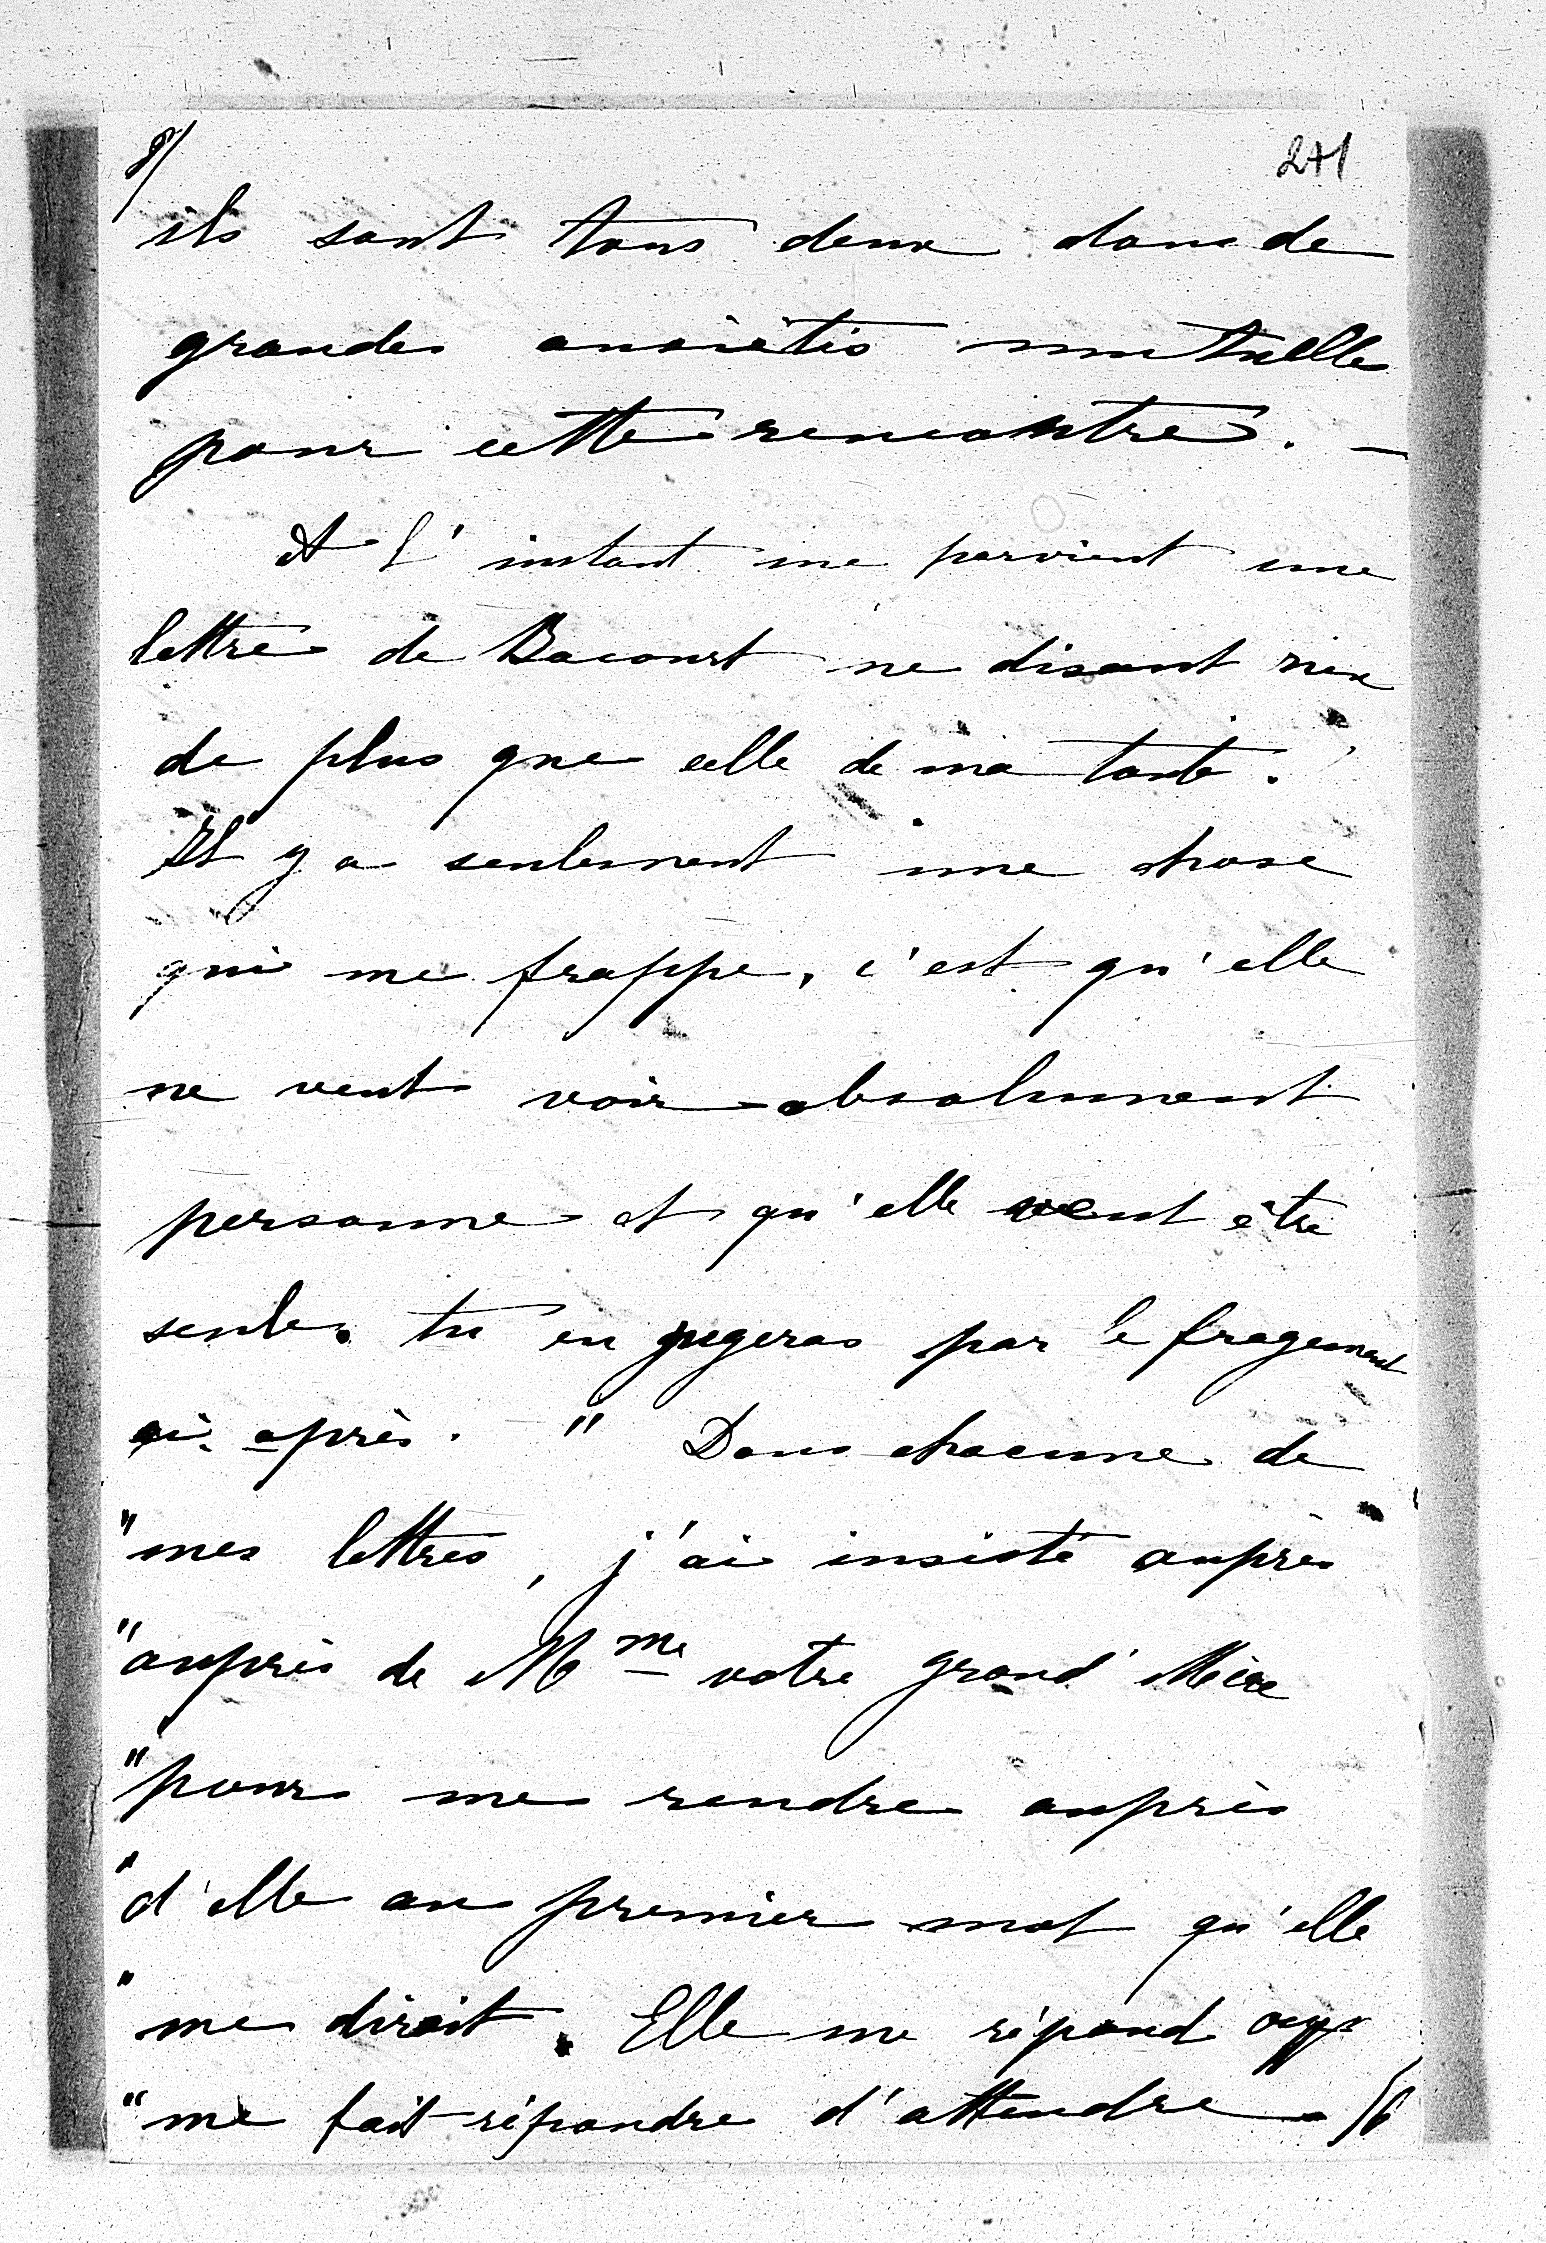 8/
271
ils sont tous deux dans de
grandes anxiétés mutuelle
pour cette rencontre. —
A l'instant me parvient une
lettre de Bacourt ne disant rien
de plus que celle de ma tante.
Il y a seulement une chose
qui me frappe, c'est qu'elle
ne veut voir absolument
personne et qu'elle veut être
seule. tu en jugeras par le fragement
ci-après. " Dans chacune de
"mes lettres, j'ai insisté auprès
"auprès de Mme votre grand'Mère
"pour me rendre auprès
"d'elle au premier mot qu'elle
"me dirait. Elle me répond
"me fait répondre d'attendre.